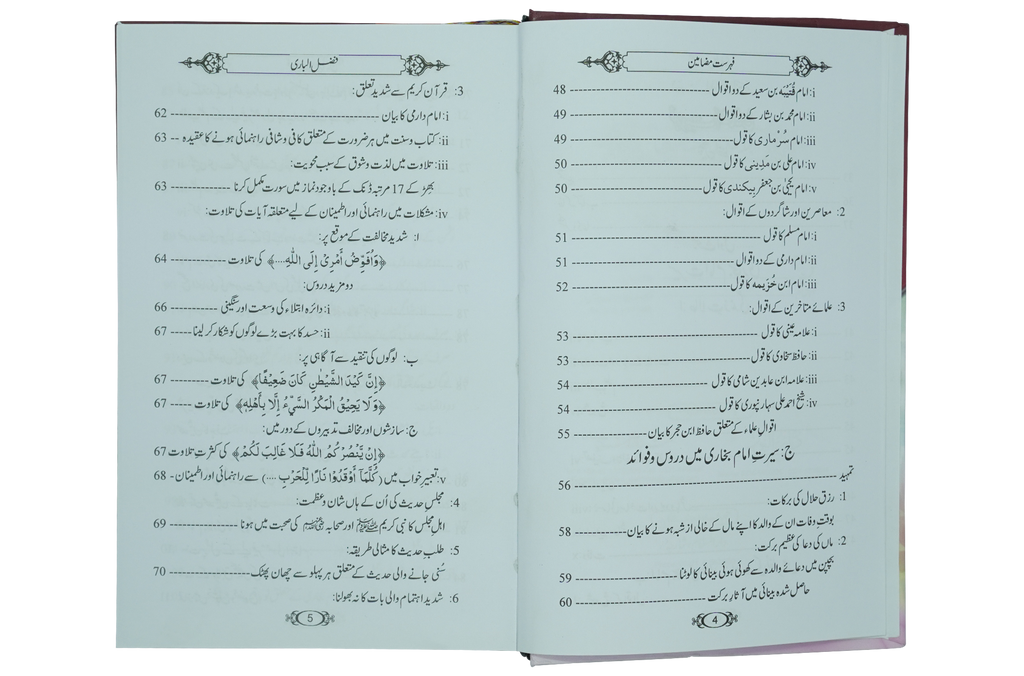 فہرست مضامین
i: امام قُتَیْبَہ بن سعید کے دو اقوال ---------- 48
ii: امام محمد بن بشار کے دو اقوال ---------- 49
iii: امام سُرْماری کا قول ---------- 49
iv: امام علی بن مَدِینی کا قول ---------- 50
v: امام یحییٰ بن جعفر بِیکندی کا قول ---------- 50
2: معاصرین اور شاگردوں کے اقوال:
i: امام مسلم کا قول ---------- 51
ii: امام دارمی کے دو اقوال ---------- 51
iii: امام ابن خُزَیمہ کا قول ---------- 52
3: علمائے متاخرین کے اقوال:
i: علامہ عینی کا قول ---------- 53
ii: حافظ سخاوی کا قول ---------- 53
iii: علامہ ابن عابدین شامی کا قول ---------- 54
iv: شیخ احمد علی سہارنپوری کا قول ---------- 54
اقوالِ علماء کے متعلق حافظ ابن حجر کا بیان ---------- 55
ج: سیرتِ امام بخاری میں دروس و فوائد
تمہید ---------- 56
1: رزق حلال کی برکات:
بوقتِ وفات ان کے والد کا اپنے مال کے خالی از شبہ ہونے کا بیان ---------- 58
2: ماں کی دعا کی عظیم برکت:
بچپن میں دعائے والدہ سے کھوئی ہوئی بینائی کا لوٹنا ---------- 59
حاصل شدہ بینائی میں آثارِ برکت ---------- 60
4
فضل الباری
3: قرآن کریم سے شدید تعلق:
i: امام دارمی کا بیان ---------- 62
ii: کتاب و سنت میں ہر ضرورت کے متعلق کافی و شافی راہنمائی ہونے کا عقیدہ -- 63
iii: تلاوت میں لذت و شوق کے سبب محویت:
بھِڑ کے 17 مرتبہ ڈنک کے باوجود نماز میں سورت مکمل کرنا ---------- 63
iv: مشکلات میں راہنمائی اور اطمینان کے لیے متعلقہ آیات کی تلاوت:
ا: شدید مخالفت کے موقع پر:
﴿وَاُفَوِّضُ أَمْرِيْٓ إِلَى اللّٰهِ....﴾ کی تلاوت ---------- 64
دو مزید دروس:
i: دائرہ ابتلاء کی وسعت اور سنگینی ---------- 66
ii: حسد کا بہت بڑے لوگوں کو شکار کر لینا ----- 67
ب: لوگوں کی تنقید سے آگاہی پر:
﴿إِنَّ كَيْدَ الشَّيْطٰنِ كَانَ ضَعِيْفًا﴾ کی تلاوت --------- 67
﴿وَلَا يَحِيْقُ الْمَكْرُ السَّيِّءُ إِلَّا بِأَهْلِهٖ﴾ کی تلاوت ----- 67
ج: سازشوں اور مخالف تدبیروں کے دور میں:
﴿إِنْ يَّنْصُرْكُمُ اللّٰهُ فَلَا غَالِبَ لَكُمْ﴾ کی کثرتِ تلاوت 67
v: تعبیرِ خواب میں (كُلَّمَآ أَوْقَدُوْا نَارًا لِّلْحَرْبِ ....) سے راہنمائی اور اطمینان - 68
4: مجلسِ حدیث کی اُن کے ہاں شان و عظمت:
اہلِ مجلس کا نبی کریم ﷺ اور صحابہ کی صحبت میں ہونا ---------- 69
5: طلبِ حدیث کا مثالی طریقہ:
سُنی جانے والی حدیث کے متعلق ہر پہلو سے چھان پھٹک ---------- 70
6: شدید اہتمام والی بات کا نہ بھولنا:
5